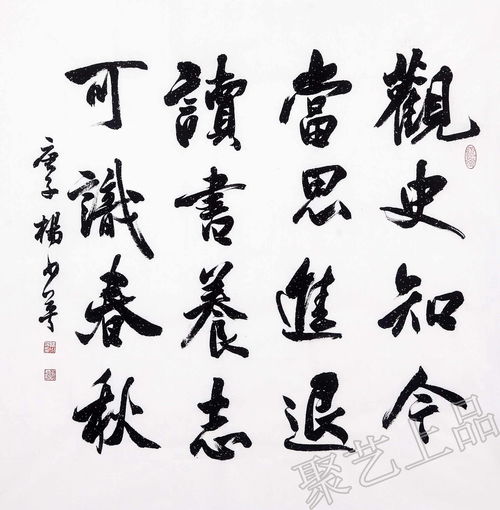 觀史知今
當思進退
讀書養志
可識春秋
庚子楊
聚艺上品